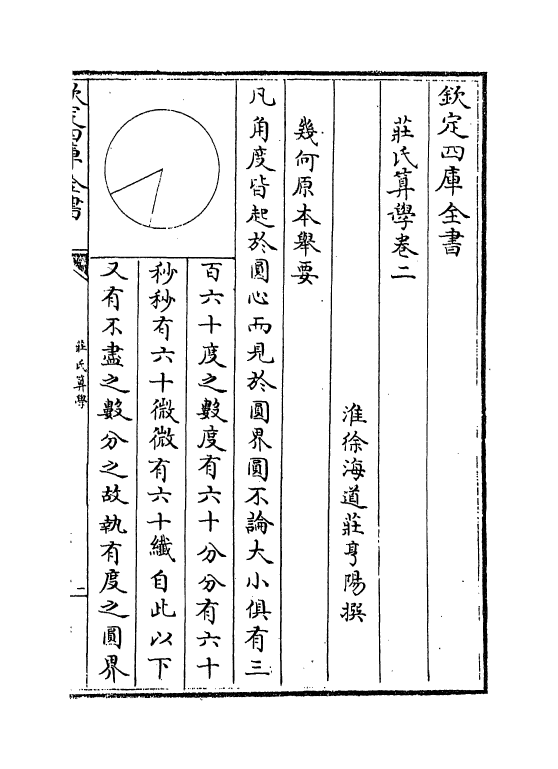 欽定四庫全書
莊氏算學卷二
淮徐海道莊亨陽撰
幾何原本舉要
凡角度皆起於圓心而見於圓界圓不論大小俱有三
百六十度之數度有六十分分有六十
秒秒有六十微微有六十纖自此以下
又有不盡之數分之故執有度之圓界
欽定四庫全書
莊氏算學
二